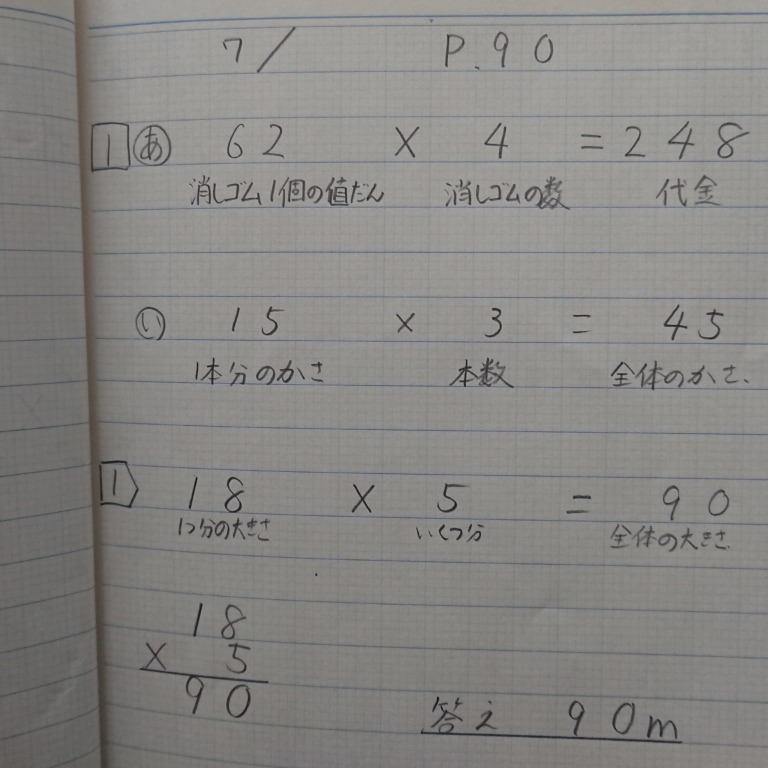 7/ P.90
1 あ 62 × 4 = 248
消しゴム1個の値だん 消しゴムの数 代金
い 15 × 3 = 45
1本分のかさ 本数 全体のかさ、
1 18 × 5 = 90
1つ分の大きさ いくつ分 全体の大きさ
18
× 5
90
答え 90m